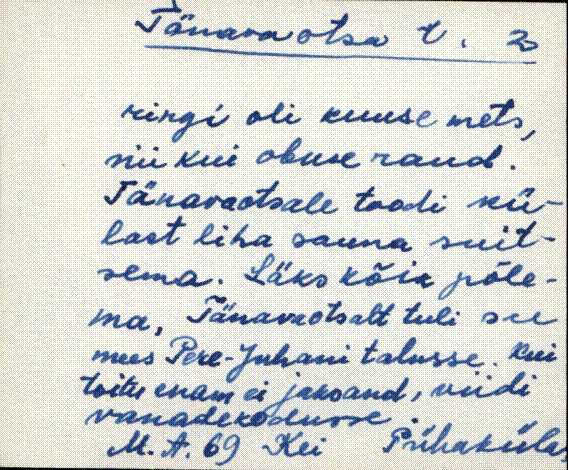 Tänavaotsa t. 2
ringi oli kuuse mets,
nii kui obuse raud.
Tänavaotsale toodi kü-
last liha sauna suit-
sema. Läks kõik põle-
ma, Tänavaotsalt tuli see
mees Pere-Juhani talusse. Kui
toitu enam ei jaksand, viidi
vanadekodusse.
M. A. 69 Kei Pühaküla,